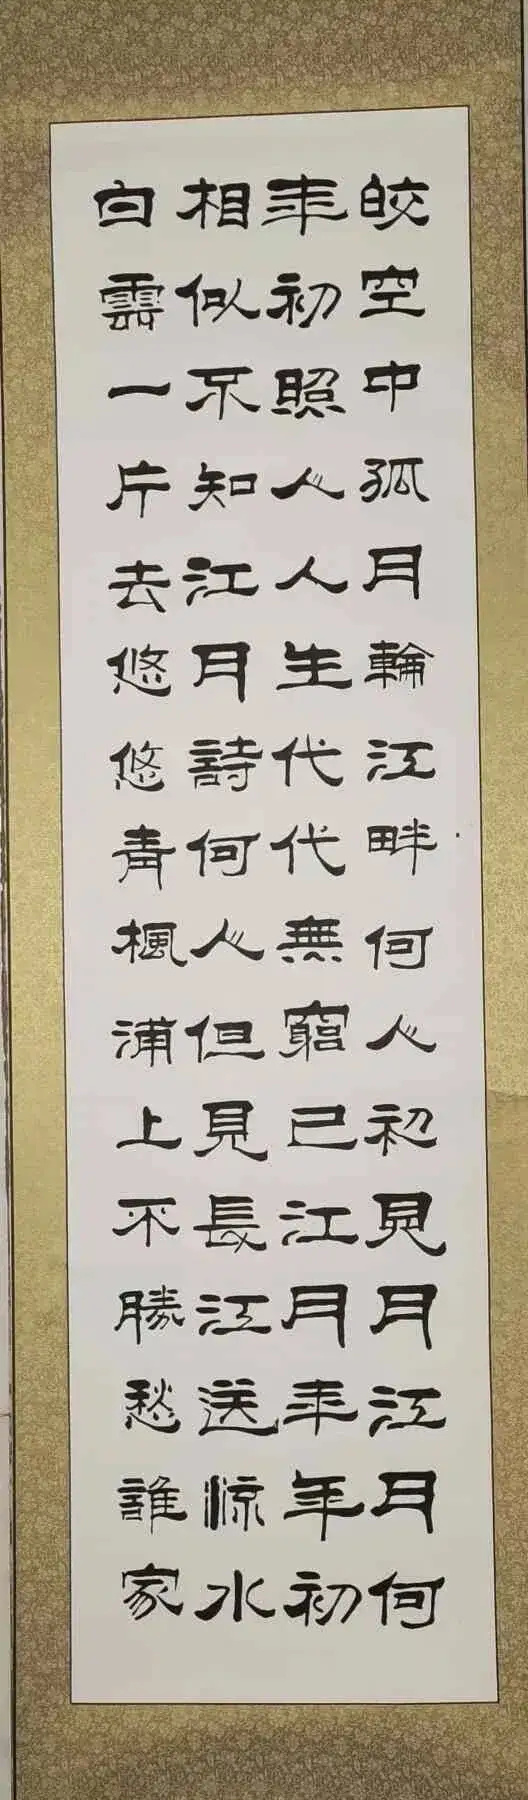 皎空中孤月輪江畔何人初見月江月何
年初照人人生代代無窮已江月年年初
相似不知江月詩何人但見長江送涼水
白雲一片去悠悠青楓浦上不勝愁誰家